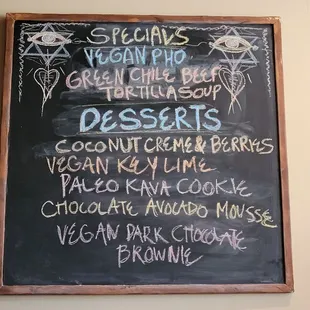 SPECIALS
VEGAN PHO
GREEN CHILE BEEF
TORTILLA SOUP
DESSERTS
COCONUT CREME & BERRIES
VEGAN KEY LIME
PALEO KAVA COOKIE
CHOCOLATE AVOCADO MOUSSE
VEGAN DARK CHOCOLATE
BROWNIE